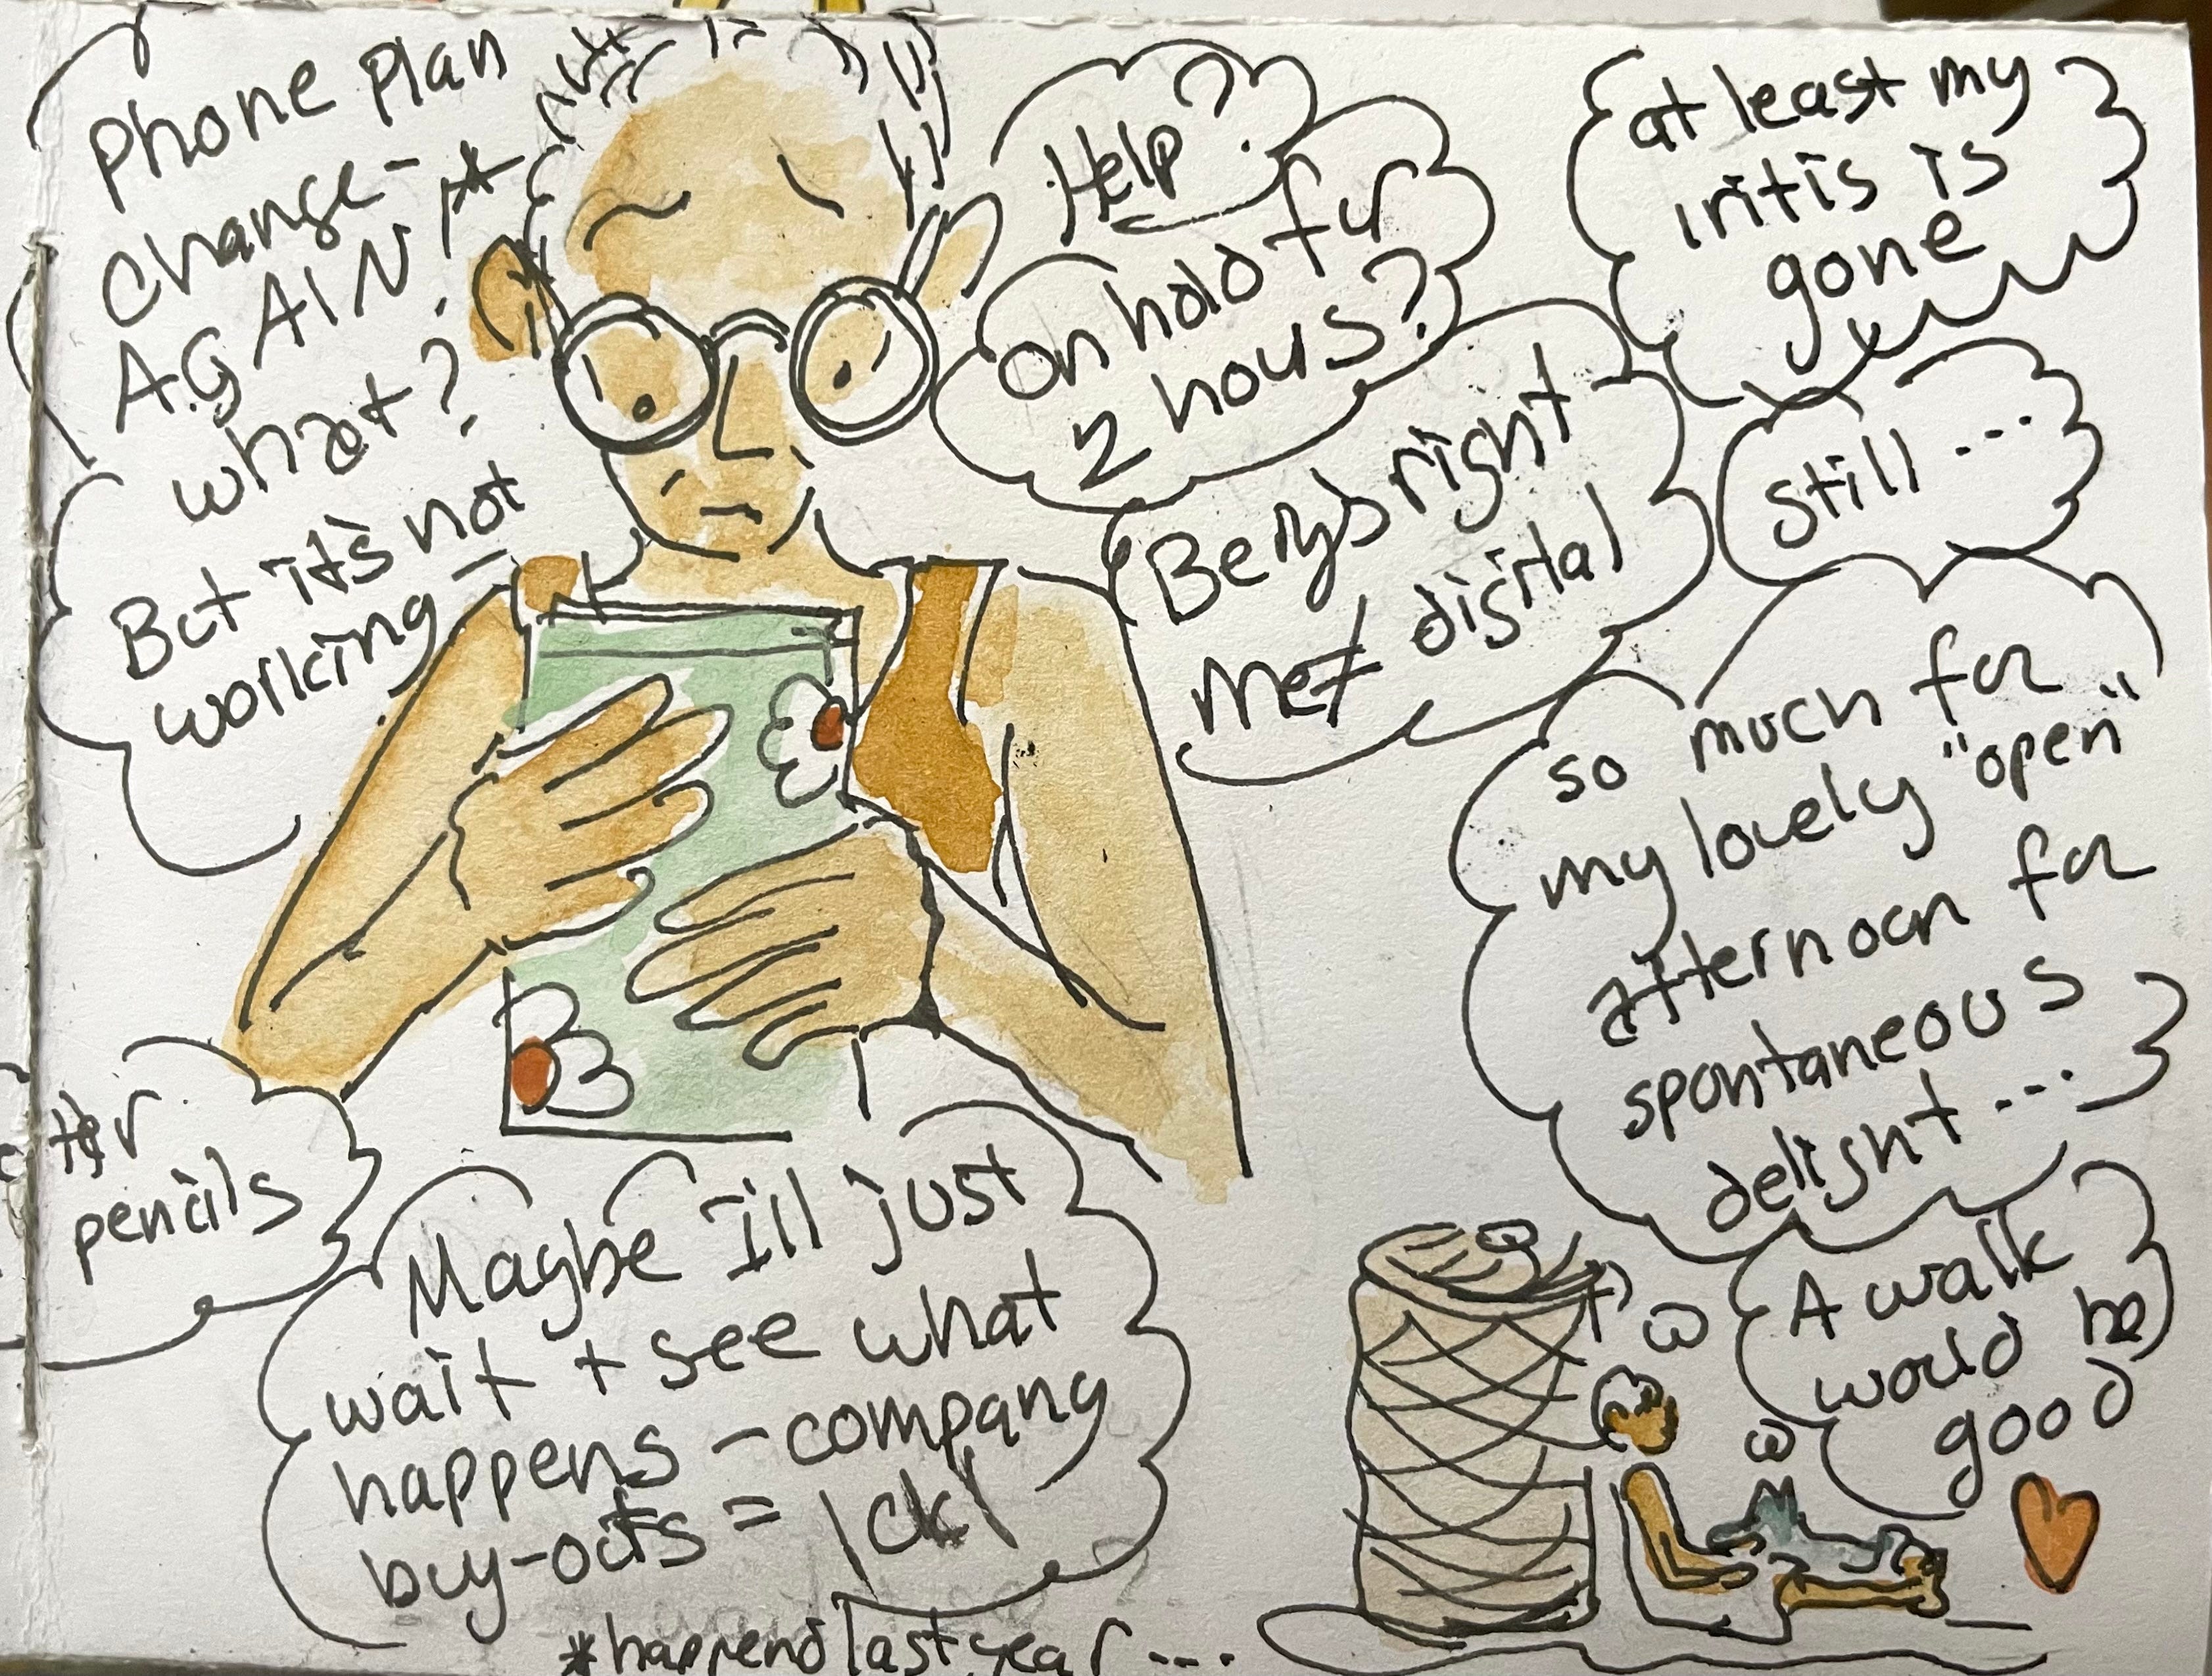 Phone plan
change-
AGAIN!*
what?
But it's not
working-
Help?
on hold fur
2 hours?
Beryb right
me≠ digital
at least my
iritis is
gone
still ...
so much for
my lovely "open"
afternoon for
spontaneous
delight ...
A walk
would be
good
pencils
Maybe I'll just
wait + see what
happens - company
buy-outs = Ick!
*happend last year ...